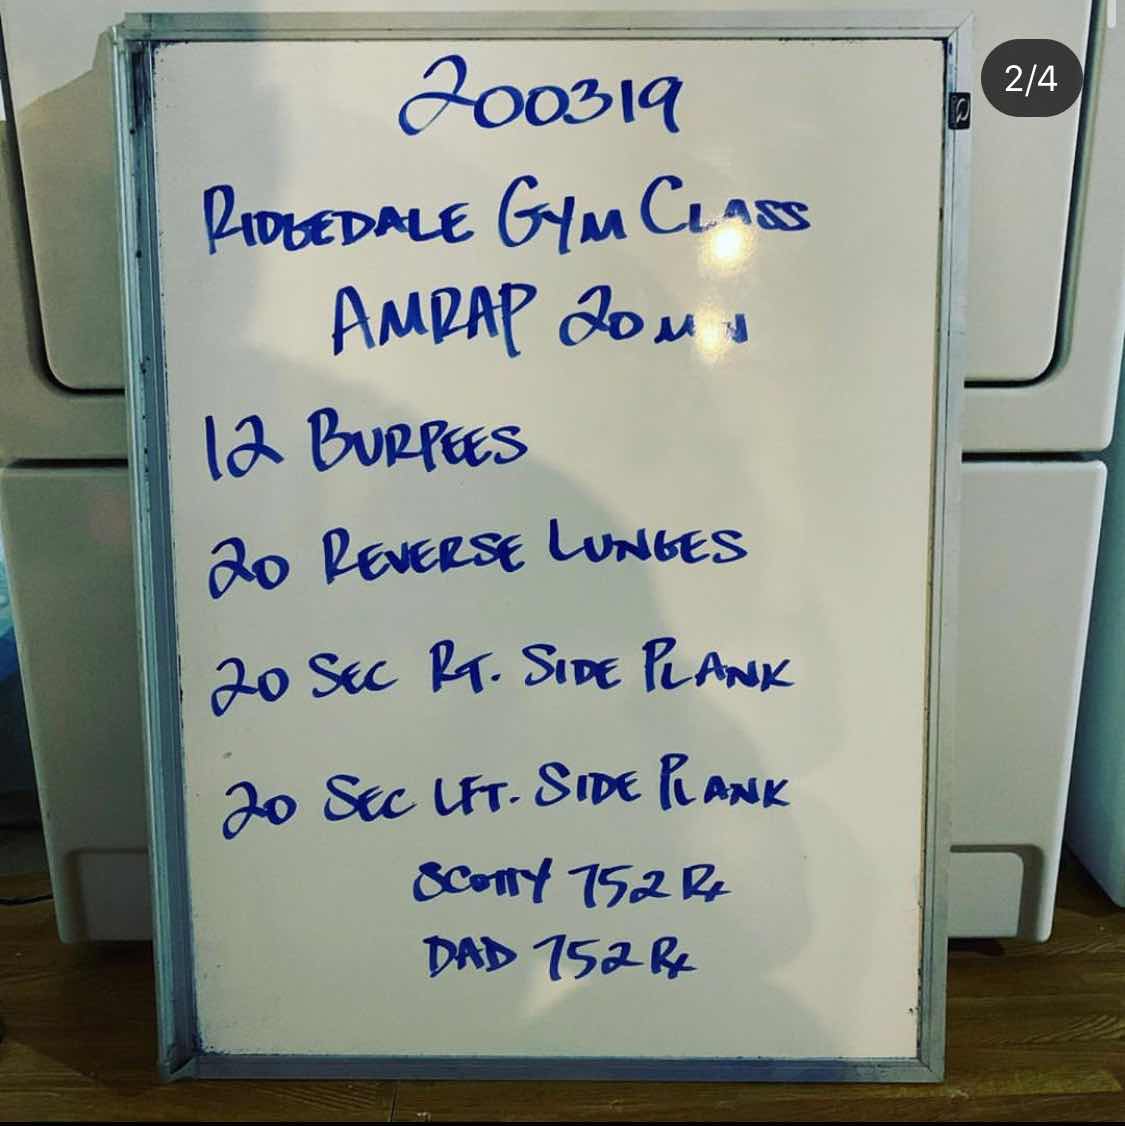 2/4
200319
RIDGEDALE GYM CLASS
AMRAP 20 MIN
12 BURPEES
20 REVERSE LUNGES
20 SEC RT. SIDE PLANK
20 SEC LFT. SIDE PLANK
SCOTTY 752 Rx
DAD 752 Rx